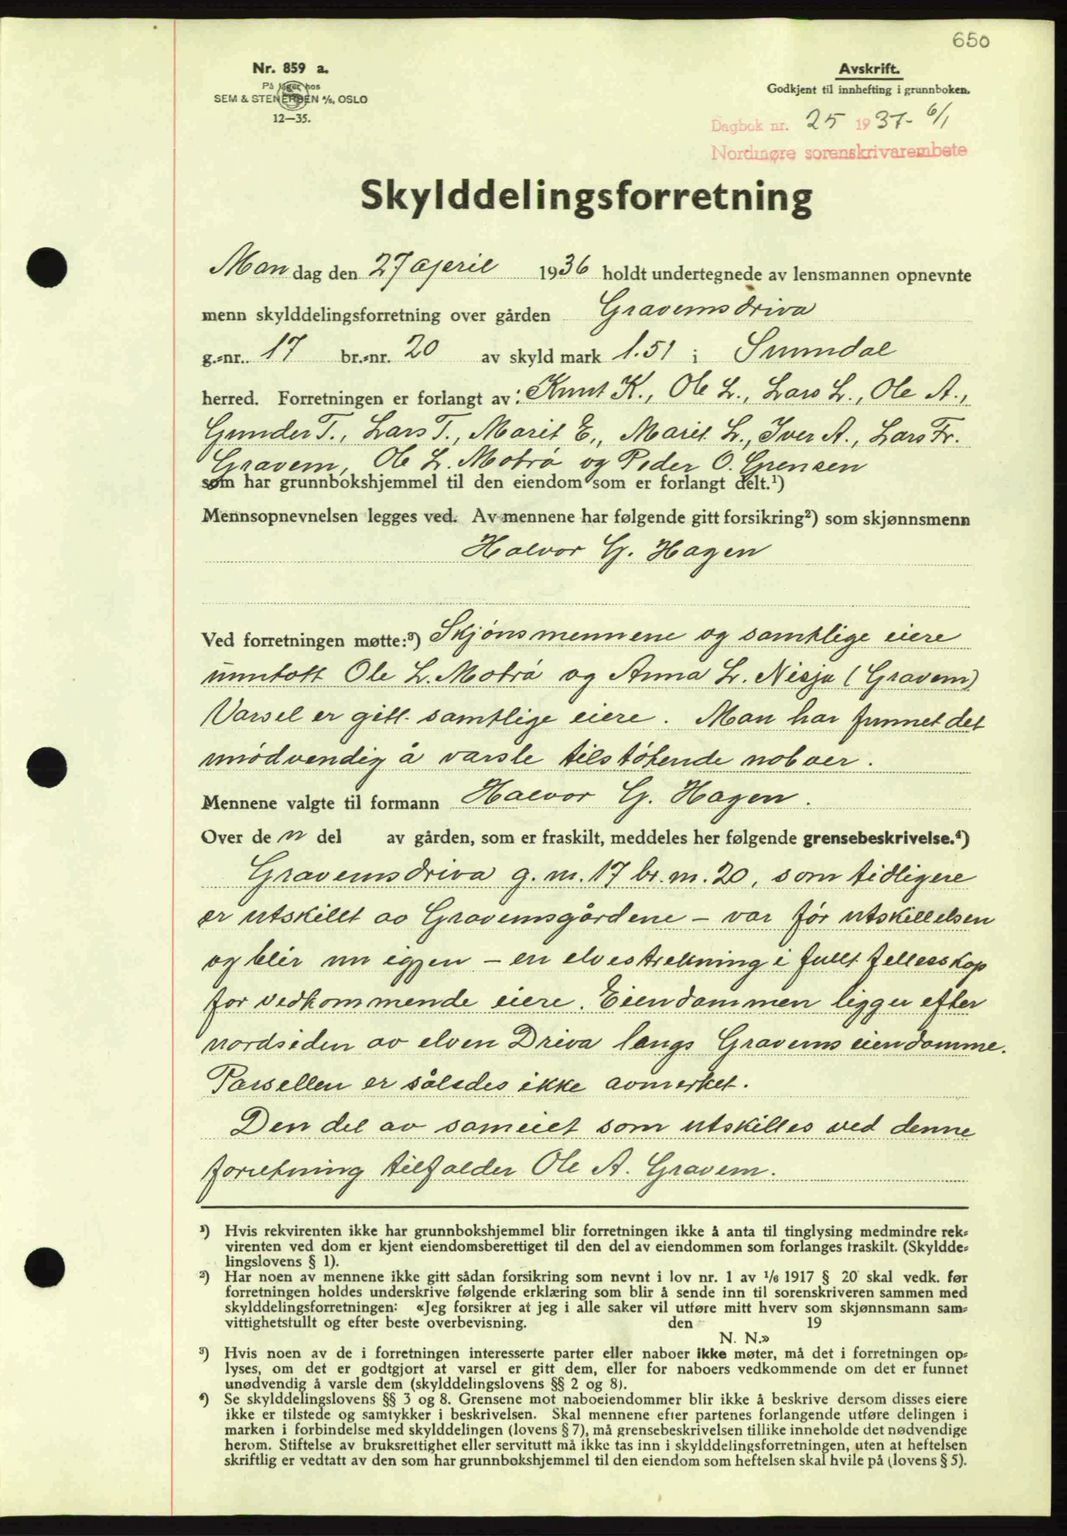 650
Nr. 859 a.
På lager hos
SEM & STENERSEN A/S, OSLO
12—35.
Avskrift.
Godkjent til innhefting i grunnboken.
Dagbok nr. 25 1937- 6/1
Nordmøre sorenskrivarembete
Skylddelingsforretning
Mandag den 27 april 1936 holdt undertegnede av lensmannen opnevnte
menn skylddelingsforretning over gården Gravemsdriva
g.-nr. 17 br.-nr. 20 av skyld mark 1.51 i Sunndal
herred. Forretningen er forlangt av: Knut K., Ole L., Lars L., Ole A.,
Gunder T., Lars T., Marit E., Marit L., Iver A., Lars Fr.
Gravem, Ole L. Motrø og Peder O. Grensen
som har grunnbokshjemmel til den eiendom som er forlangt delt.¹)
Mennsopnevnelsen legges ved. Av mennene har følgende gitt forsikring²) som skjønnsmenn
Halvor G. Hagen
Ved forretningen møtte:³) Skjønsmennene og samtlige eiere
unntatt Ole L. Motrø og Anna L. Nisja (Gravem)
Varsel er gitt samtlige eiere. Man har funnet det
unødvendig å varsle tilstøtende naboer.
Mennene valgte til formann Halvor G. Hagen.
Over den del av gården, som er fraskilt, meddeles her følgende grensebeskrivelse.⁴)
Gravemsdriva g.nr. 17 br.nr. 20, som tidligere
er utskillt av Gravemsgårdene – var før utskillelsen
og blir nu igjen – en elvestrekning i fullt fellesskap
for vedkommende eiere. Eiendommen ligger efter
nordsiden av elven Driva langs Gravems eiendomme.
Parsellen er således ikke avmerket.
Den del av sameiet som utskilles ved denne
forretning tilfalder Ole A. Gravem.
¹) Hvis rekvirenten ikke har grunnbokshjemmel blir forretningen ikke å anta til tinglysing medmindre rek-
virenten ved dom er kjent eiendomsberettiget til den del av eiendommen som forlanges fraskilt. (Skyldde-
lingslovens § 1).
²) Har noen av mennene ikke gitt sådan forsikring som nevnt i lov nr. 1 av 1/6 1917 § 20 skal vedk. før
forretningen holdes underskrive følgende erklæring som blir å sende inn til sorenskriveren sammen med
skylddelingsforretningen: «Jeg forsikrer at jeg i alle saker vil utføre mitt hverv som skjønnsmann sam-
vittighetsfullt og efter beste overbevisning. den 19
N. N.»
³) Hvis noen av de i forretningen interesserte parter eller naboer ikke møter, må det i forretningen op-
lyses, om det er godtgjort at varsel er gitt dem, eller for naboers vedkommende om det er funnet
unødvendig å varsle dem (skylddelingslovens §§ 2 og 8).
⁴) Se skylddelingslovens §§ 3 og 8. Grensene mot naboeiendommer blir ikke å beskrive dersom disses eiere
ikke er tilstede og samtykker i beskrivelsen. Skal mennene efter partenes forlangende utføre delingen i
marken i forbindelse med skylddelingen (lovens § 7), må grensebeskrivelsen tillike inneholde det nødvendige
herom. Stiftelse av bruksrettighet eller servitutt må ikke tas inn i skylddelingsforretningen, uten at heftelsen
skriftlig er vedtatt av den som har grunnbokshjemmel til den eiendom som heftelsen skal hvile på (lovens § 5).